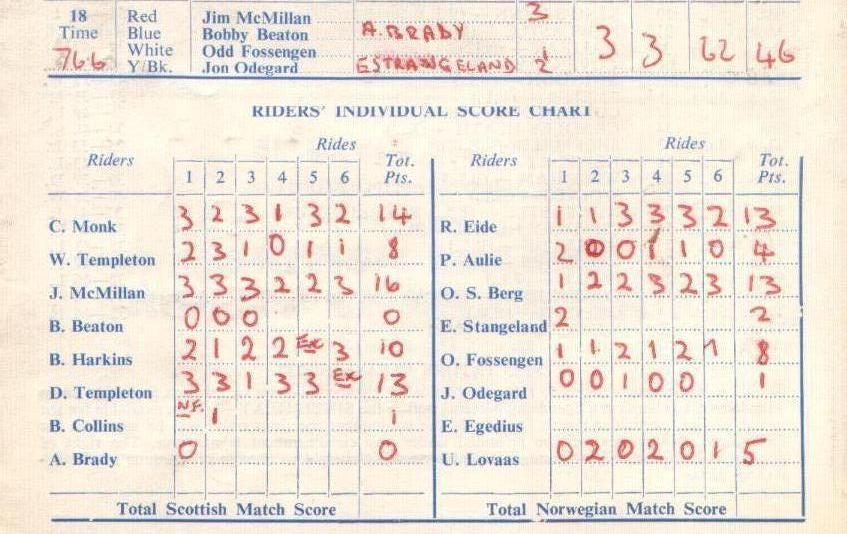 18 Red Jim McMillan 3
Time Blue Bobby Beaton A. BRADY
76.6 White Odd Fossengen 1 3 3 62 46
Y/Bk. Jon Odegard E STRANGELAND 2
RIDERS' INDIVIDUAL SCORE CHART
Riders Rides Tot. Pts. Riders Rides Tot. Pts.
1 2 3 4 5 6 1 2 3 4 5 6
C. Monk 3 2 3 1 3 2 14 R. Eide 1 1 3 3 3 2 13
W. Templeton 2 3 1 0 1 1 8 P. Aulie 2 0 0 1 1 0 4
J. McMillan 3 3 3 2 2 3 16 O. S. Berg 1 2 2 3 2 3 13
B. Beaton 0 0 0 0 E. Stangeland 2 2
B. Harkins 2 1 2 2 Ex 3 10 O. Fossengen 1 1 2 1 2 1 8
D. Templeton 3 3 1 3 3 Ex 13 J. Odegard 0 0 1 0 0 1
B. Collins N.F. 1 1 E. Egedius
A. Brady 0 0 U. Lovaas 0 2 0 2 0 1 5
Total Scottish Match Score Total Norwegian Match Score